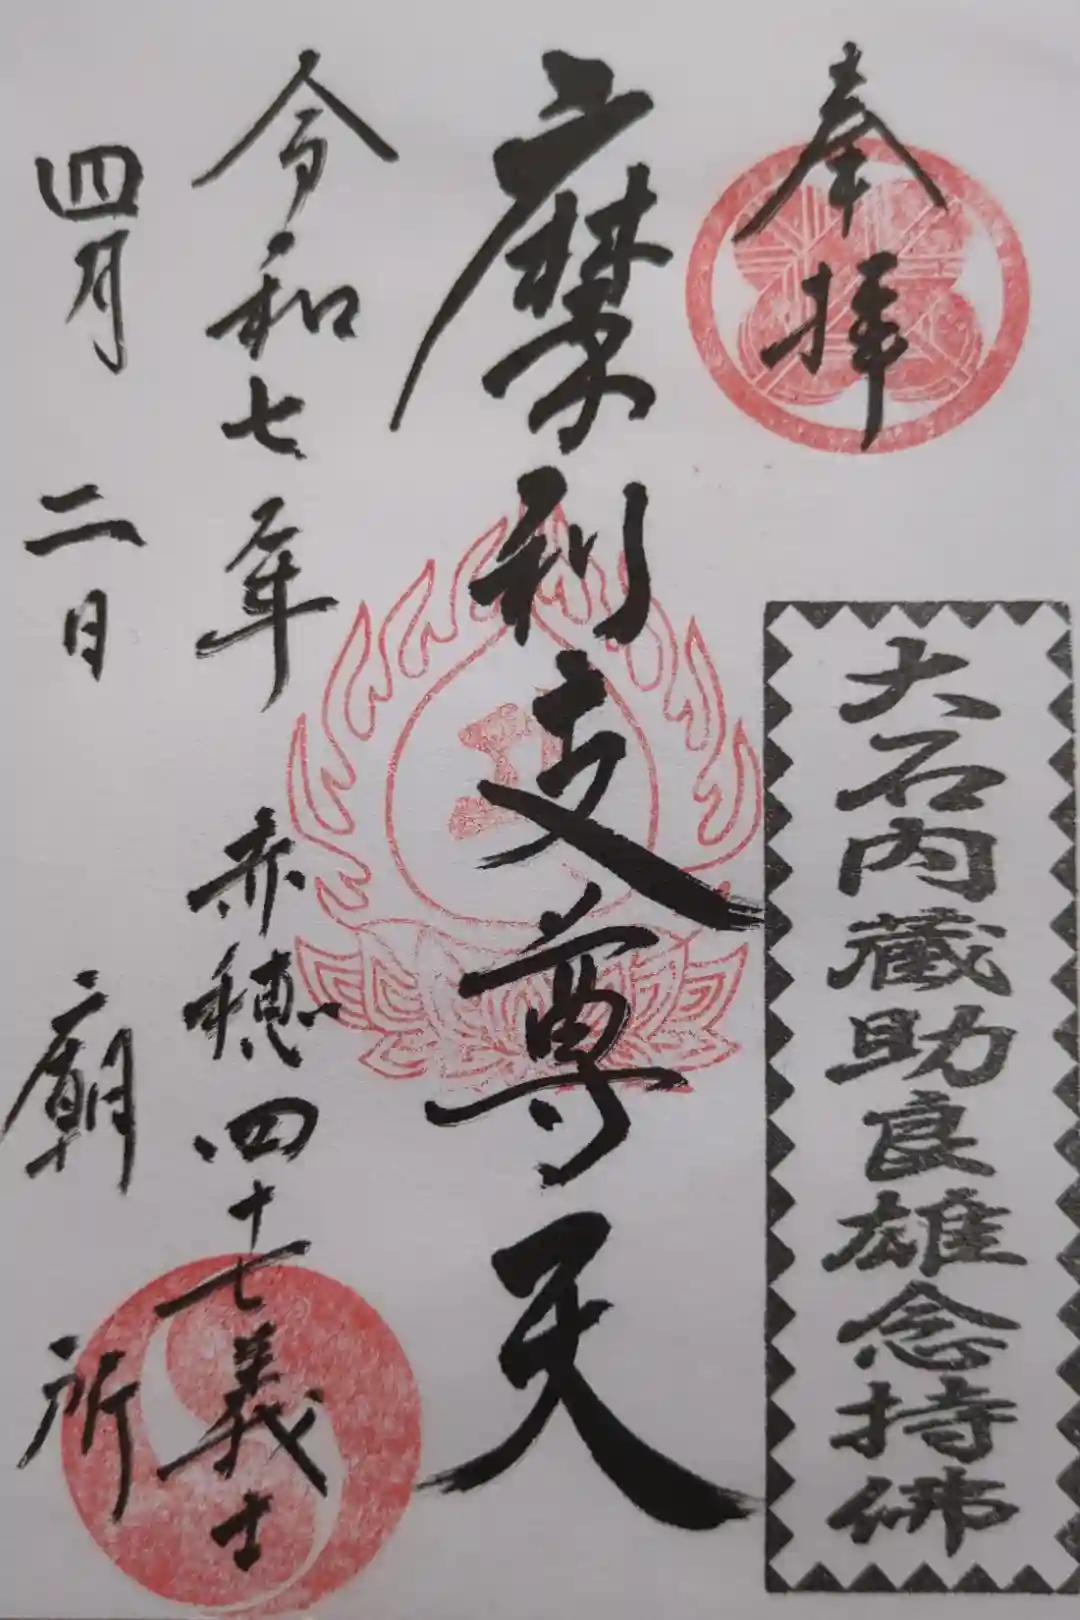 奉拝
大石内蔵助良雄念持佛
摩利支尊天
令和七年
四月二日
赤穂四十七義士
廟所